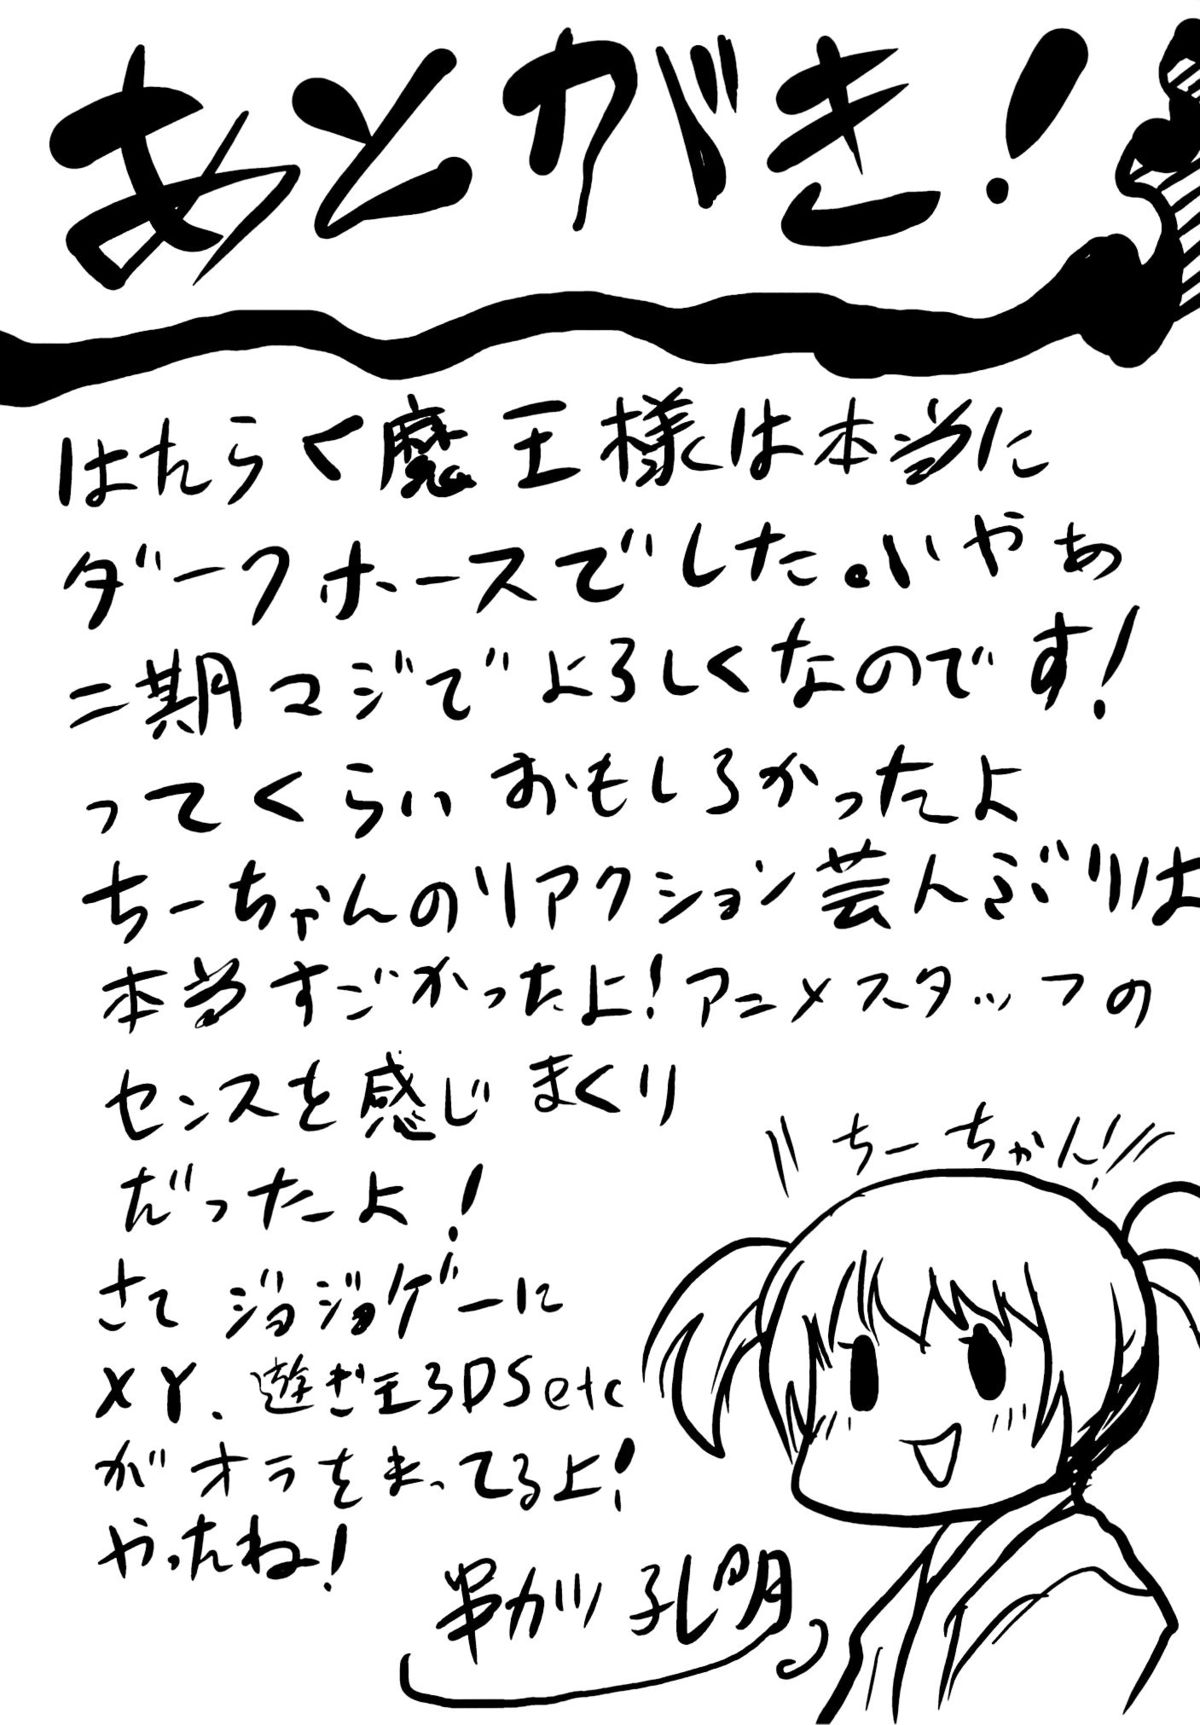 あとがき!
はたらく魔王様は本当に
ダークホースでした。いやぁ
二期マジでよろしくなのです!
ってくらいおもしろかったよ
ちーちゃんのリアクション芸人ぶりは
本当すごかったよ!アニメスタッフの
センスを感じまくり
だったよ!
さてジョジョゲーに
XY、遊ぎ王3DSetc
がオラをまってるよ!
やったね!
ちーちゃん!
串カツ孔明